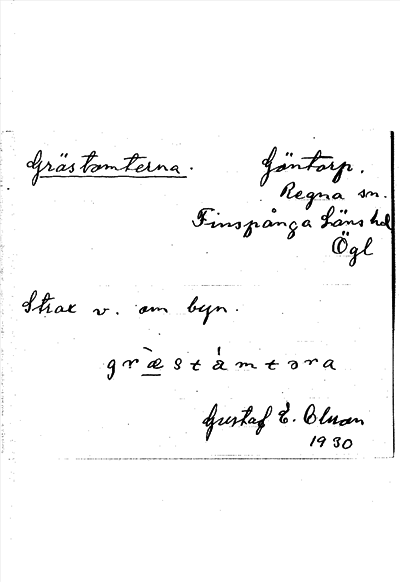 Grästomterna. Göntorp.
Regna sn.
Finspånga Läns hd
Ögl
Strax v. om byn.
græ̀stámtəra
Gustaf E. Olsson
1930